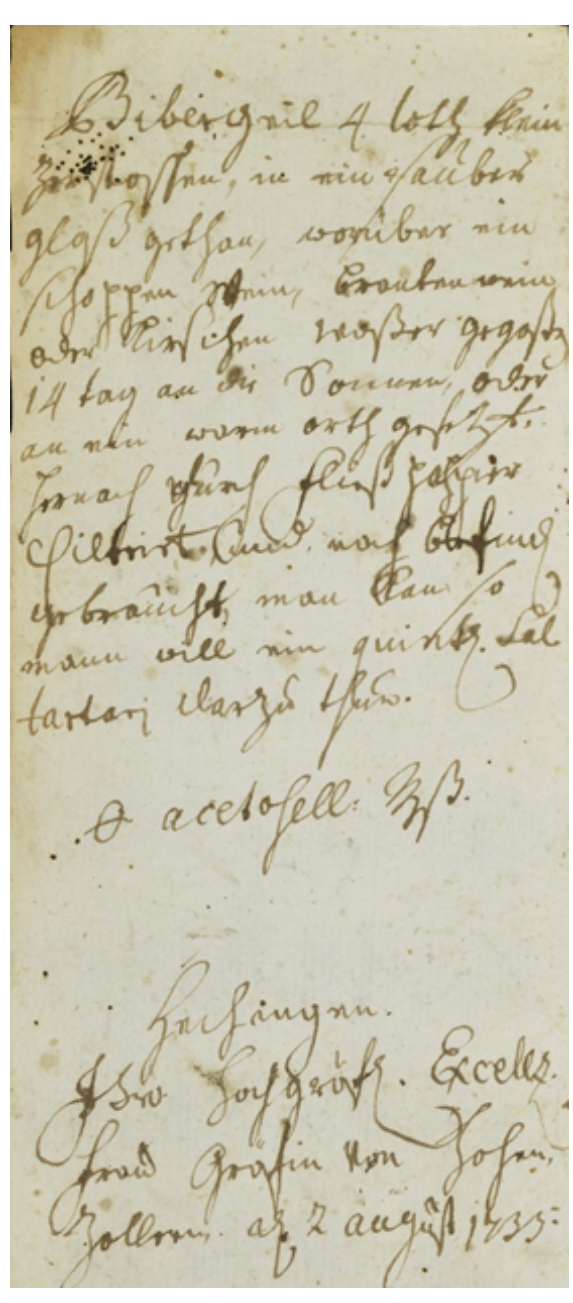 Bibergeil 4 loth klein
zerstossen, in ein sauber
glaß gethan, worüber ein
schoppen Wein, brantenwein
oder Kirschen waßer gegoßen
14 tag an die Sonnen, oder
an ein warm orth gesetzt,
hernach durch fließ pappier
filtrirt. und nach
gebraucht, man kan so
mann will ein quintl. Sal
tartari darzu thun.
acetosell. ℥ß.
Hechingen.
Ihro hochgräfl. Excellz.
Frau Gräfin von Hohen,
Zollern. 2 august 1735.